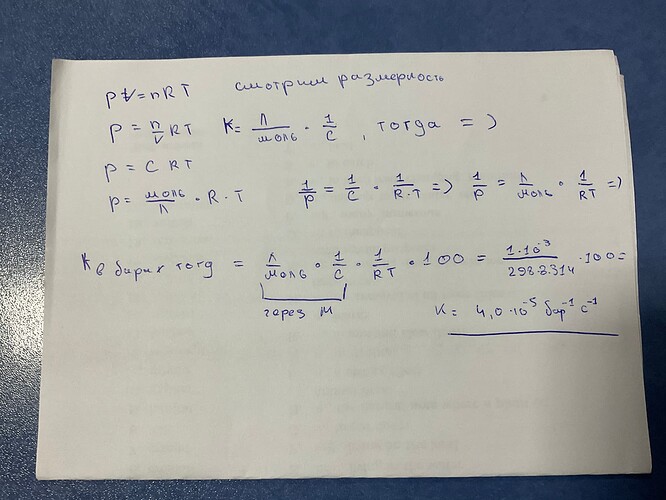 pV=nRT смотрим размерность
p = n/V RT K = л/моль · 1/с , тогда =>
p = C RT
p = моль/л · R · T 1/p = 1/C · 1/R·T => 1/p = л/моль · 1/RT =>
K в барах тогд = л/моль · 1/с · 1/RT · 100 = 1·10⁻³/298·8.314 · 100 =
через M K = 4,0·10⁻⁵ бар⁻¹ с⁻¹